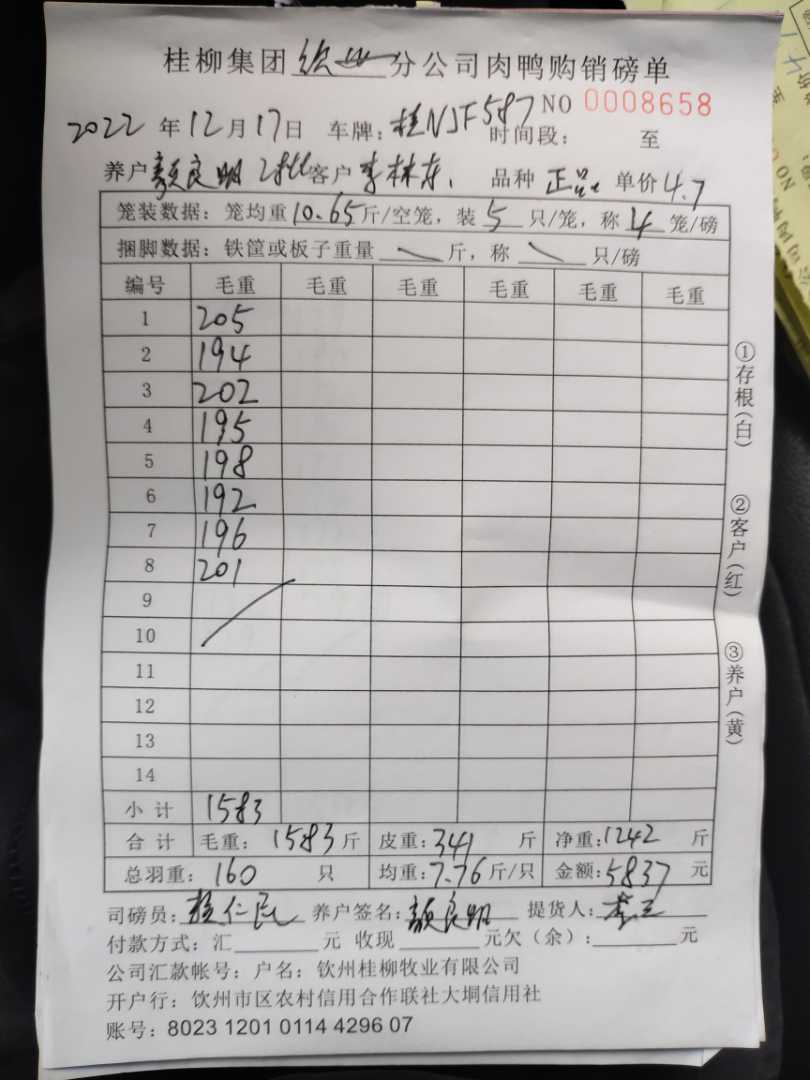 桂柳集团钦业分公司肉鸭购销磅单
NO 0008658
2022年12月17日 车牌：桂NJF587 时间段： 至
养户颜良明 2批 客户李林东 品种 正品 单价4.7
笼装数据：笼均重10.65斤/空笼，装5只/笼，称4笼/磅
捆脚数据：铁筐或板子重量 斤，称 只/磅
编号 毛重 毛重 毛重 毛重 毛重 毛重
1 205
2 194
3 202
4 195
5 198
6 192
7 196
8 201
9
10
11
12
13
14
小计 1583
合计 毛重：1583斤 皮重：341 斤 净重：1242 斤
总羽重：160 只 均重：7.76斤/只 金额：5837 元
司磅员：仁民 养户签名：颜良明 提货人：李
付款方式：汇 元 收现 元欠（余）： 元
公司汇款帐号：户名：钦州桂柳牧业有限公司
开户行：饮州市区农村信用合作联社大垌信用社
账号：8023 1201 0114 4296 07
①存根（白）
②客户（红）
③养户（黄）